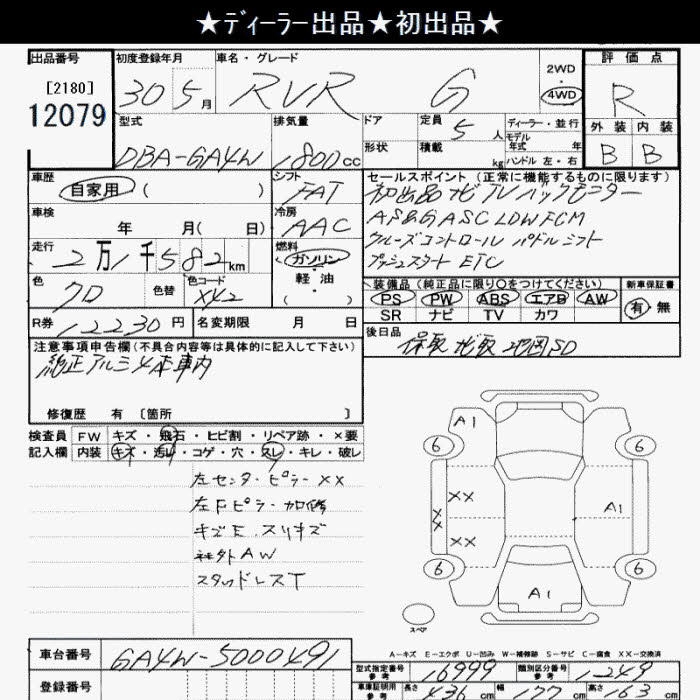 ★ディーラー出品★初出品★
出品番号
[2180]
12079
初度登録年月
30 5月
車名・グレード
RVR G
2WD
・
4WD
評価点
R
外装 内装
B B
型式
DBA-GA4W
排気量
1800cc
ドア
形状
定員 5人
積載 kg
ディーラー・並行
モデル
年式 年
ハンドル 左・右
車歴
自家用 ( )
シフト
FAT
車検
年 月( 日)
冷房
AAC
走行
2万1千582km
燃料
ガソリン
・
軽油
( )
色
クロ
色替
色コード
X42
R券 12230円
名変期限 月 日
セールスポイント (正常に機能するものに限ります)
初出品 ナビ TV バックモニター
AS&G ASC LDW FCM
クルーズコントロール パドルシフト
プッシュスタート ETC
装備品 (純正品に限り○をつけてください)
PS PW ABS エアB AW
SR ナビ TV カワ
新車保証書
有・無
後日品
保取 ナビ取 地図SD
注意事項申告欄(不具合内容等は具体的に記入して下さい)
純正アルミ4本車内
修復歴 有 〔箇所 〕
検査員 FW キズ・飛石・ヒビ割・リペア跡・×要
記入欄 内装 キズ・汚れ・コゲ・穴・スレ・キレ・破レ
左センターピラーXX
左Fピラー加修
キズE、スリキズ
社外AW
スタッドレスT
A1
6 6
XX
XX
XX
A1
6 6
A1
スペア
A-キズ E-エクボ U-凹み W-補修跡 S-サビ C-腐食 XX-交換済
車台番号 GA4W-5000491
登録番号
型式指定番号
参考
16999
類別区分番号
参考
1249
車庫証明用
参考
長さ 436cm 幅 177cm 高さ 163cm